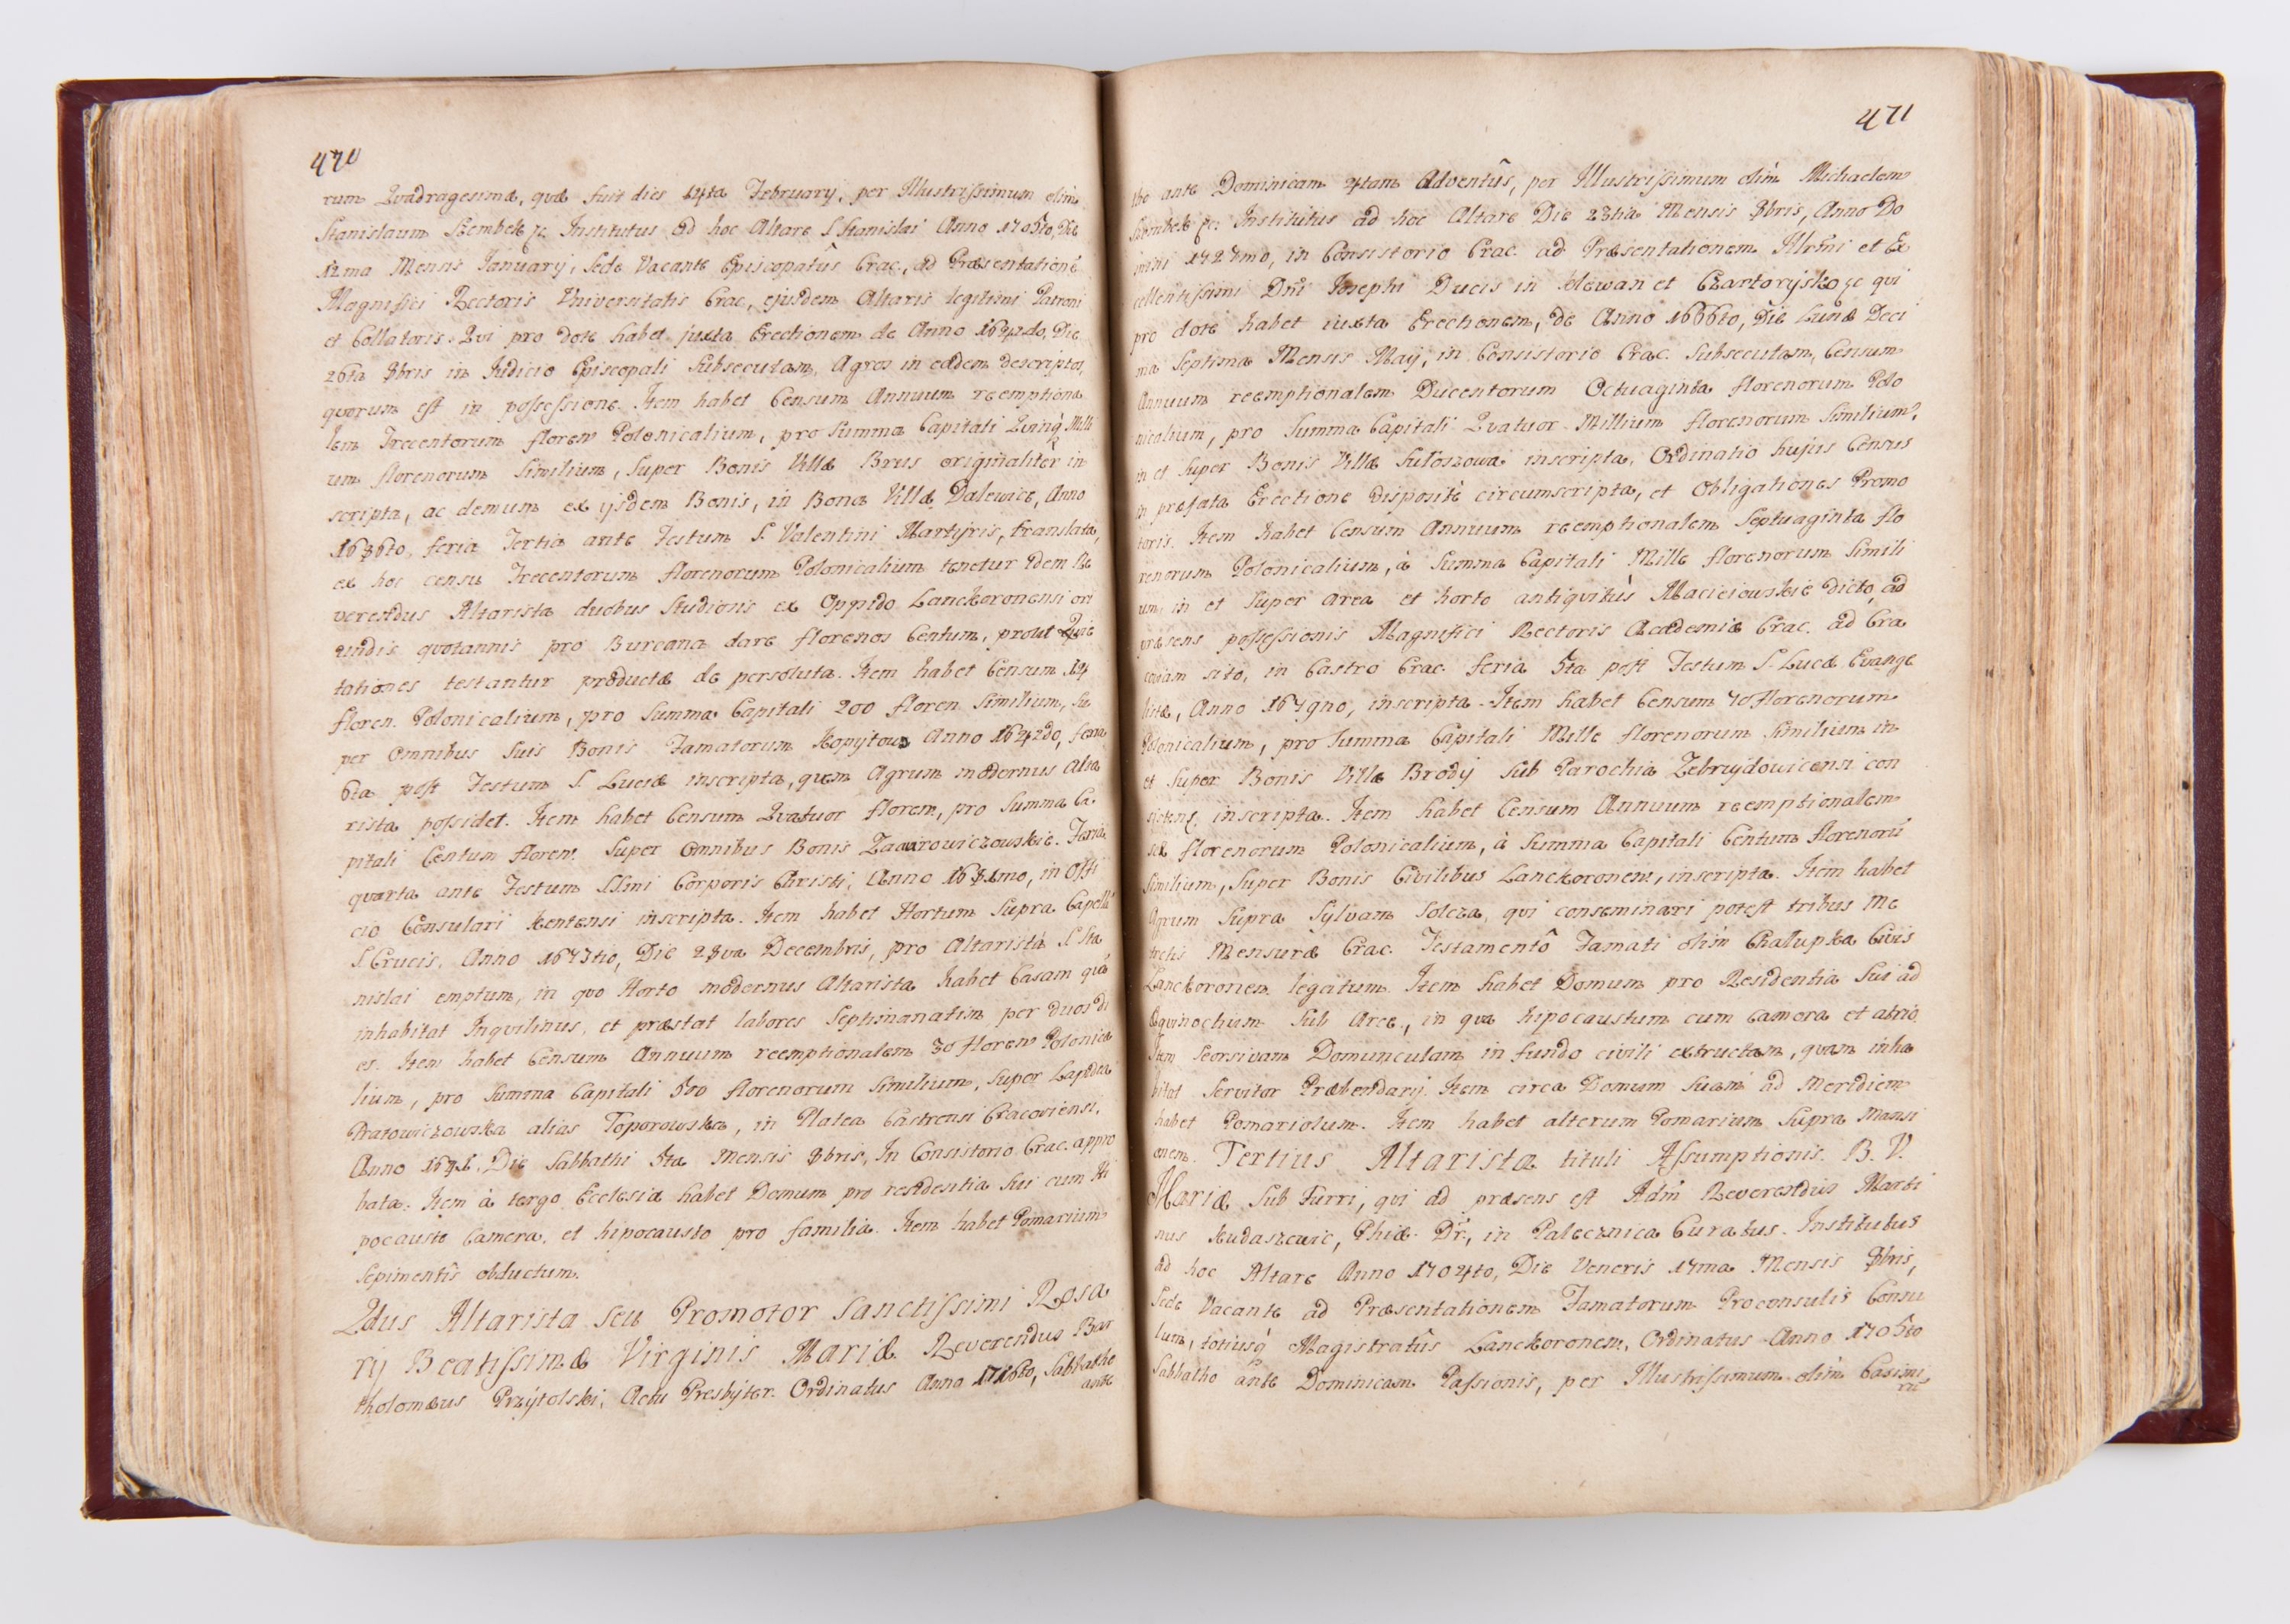 470
rum Quadragesimæ, quæ fuit dies 14ta February, per Illustrissimum olim
Stanislaum Szembek &c. Institutus ad hoc Altare S. Stanislai Anno 1705to, Die
12ma Mensis January, Sede Vacante Episcopatûs Crac., ad Præsentatione
Magnifici Rectoris Universitatis Crac., ejusdem Altaris legitimi Patroni
et Collatoris. Qui pro dote habet juxta Erectionem de Anno 1642do, Die
26ta 8bris in Judicio Episcopali Subsecutam, Agros in eadem descriptos,
quorum est in possessione. Item habet Censum Annuum reemptiona
lem Trecentorum floren Polonicalium, pro Summa Capitali Quinq Mille
um florenorum Similium, Super Bonis Villæ Brus originaliter in
scripta, ac demum ex ijsdem Bonis, in Bona Villæ Dalewice, Anno
1686to, feria Tertia ante Festum S. Valentini Martyris, translata,
ex hoc censu Trecentorum florenorum Polonicalium tenetur idem Re
verendus Altarista duobus Studiosis ex Oppido Lanckoronensi ori
undis quotannis pro Bursana dare florenos Centum, prout Quie
tationes testantur productæ de persoluta. Item habet Censum 14
floren. Polonicalium, pro Summa Capitali 200 floren. Similium, Su
per Omnibus Suis Bonis Famatorum Kopytow Anno 1642do, feria
6ta post Festum S. Luciæ inscripta, quem Agrum modernus Alta
rista possidet. Item habet Censum Quatuor floren, pro Summa Ca
pitali Centum floren. Super Omnibus Bonis Feria
quarta ante Festum SSmi Corporis Christi, Anno 1681mo, in Offi
cio Consulari Kentensi inscripta. Item habet Hortum Supra Capell
S. Crucis, Anno 1673tio, Die 28va Decembris, pro Altarista S. Sta
nislai emptum, in quo Horto modernus Altarista habet Casam quã
inhabitat Inquilinus, et præstat labores Septimanatim per duos di
es. Item habet Censum Annuum reemptionalem 30 floren Polonica
lium, pro Summa Capitali 500 florenorum Similium, Super Lapidea
Pratowiczowska alias Toporowska, in Platea Castrensi Cracoviensi,
Anno Die Sabbathi 5ta Mensis 8bris, In Consistorio Crac. appro
bata. Item à tergo Ecclesiæ habet Domum pro residentia Sui cum Hi
pocausto Camera, et hipocausto pro familia. Item habet Pomarium
Sepimentis obductum.
2dus Altarista Seu Promotor Sanctissimi Rosa
rij Beatissimæ Virginis Mariæ Reverendus Bar
tholomæus Przytolski, Actu Presbyter. Ordinatus Anno 1716to, Sabbatho
ante
471
tho ante Dominicam 4tam Adventûs, per Illustrissimum olim Michaelem
Szembek &c. Institutus ad hoc Altare Die 23tia Mensis 8bris, Anno Do
mini 1727mo, in Consistorio Crac. ad Præsentationem Illrmi et Ex
cellentissimi Dni Josephi Ducis in Klewan et Czartorysko &c qui
pro dote habet iuxta Erectionem, de Anno 1666to, Die Lunæ Deci
ma Septima Mensis Maij, in Consistorio Crac. Subsecutam, Censum
Annuum reemptionalem Ducentorum Octuaginta florenorum Polo
nicalium, pro Summa Capitali Quatuor Millium florenorum Similium,
in et Super Bonis Villæ Sułoszowa inscripta, Ordinatio hujus Census
in præfata Erectione dispositè circumscripta, et Obligationes Promo
toris. Item habet Censum Annuum reemptionalem Septuaginta flo
renorum Polonicalium, à Summa Capitali Mille florenorum Simili
um, in et Super Area et horto antiquitùs Maciciowskie dicto, ad
præsens possessionis Magnifici Rectoris Academiæ Crac. ad Cra
coviam sito, in Castro Crac. feria 5ta post Festum S. Lucæ Evange
listæ, Anno 1679no, inscripta. Item habet Censum 70 florenorum
Polonicalium, pro Summa Capitali Mille florenorum Similium in
et Super Bonis Villæ Brody Sub Parochia Zebrzydovicensi con
sisten. inscripta. Item habet Censum Annuum reemptionalem
sex florenorum Polonicalium, à Summa Capitali Centum florenorũ
Similium, Super Bonis Civilibus Lanckoronen, inscripta. Item habet
Agrum Supra Sylvam Solcza, qui conseminari potest tribus Me
tretis Mensuræ Crac. Testamentô Famati olim Chałupka Civis
Lanckoronen legatum. Item habet Domum pro Residentia Sui ad
Æquinoctium Sub Arce, in qua hipocaustum cum camera et atrio
Item Seorsivam Domunculam in fundo civili extructam, quam inha
bitat Servitor Præbendarij. Item circa Domum Suam ad Meridiem
habet Pomariolum. Item habet alterum Pomarium Supra Mansi
onem. Tertius Altarista tituli Assumptionis B. V.
Mariæ Sub Turri, qui ad præsens est Adm Reverendus Marti
nus Kudaszewic, Phiæ Dr., in Palecznica Curatus. Institutus
ad hoc Altare Anno 1704to, Die Veneris 17ma Mensis 8bris,
Sede Vacante ad Præsentationem Famatorum Proconsulis Consu
lum, totiusq Magistratûs Lanckoronen, Ordinatus Anno 1705to
Sabbatho ante Dominicam Passionis, per Illustrissimum olim Casimi
ru